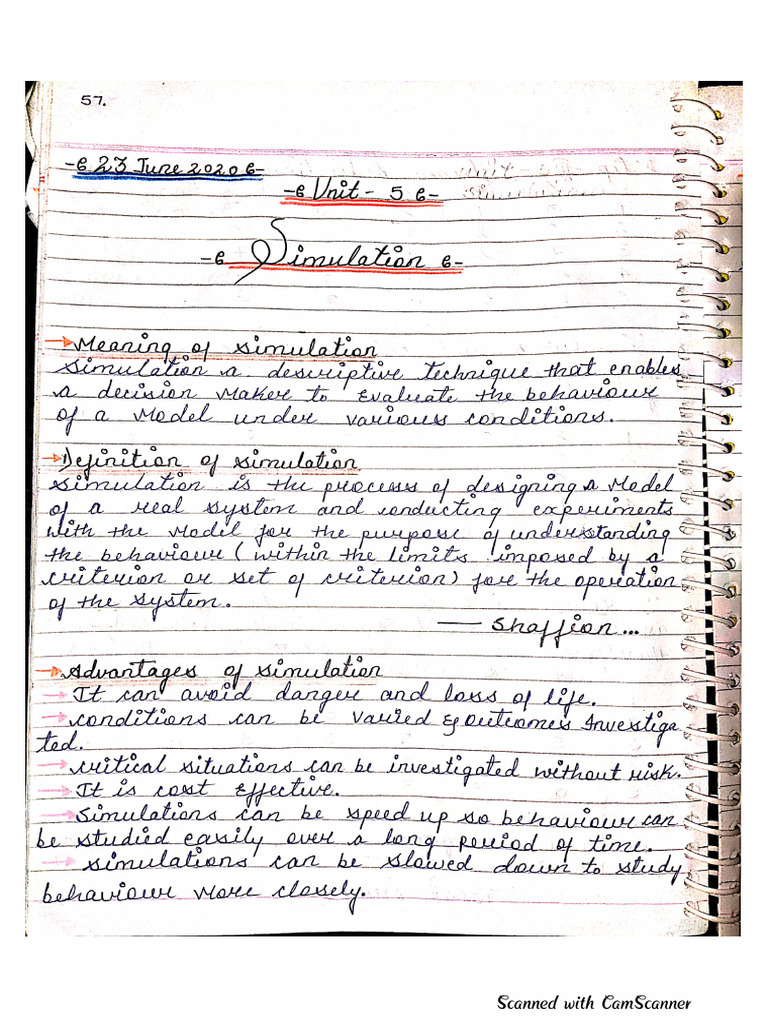 57.
23 June 2020
Unit - 5
Simulation
Meaning of simulation
Simulation a descriptive technique that enables
a decision maker to evaluate the behaviour
of a model under various conditions.
Definition of simulation
Simulation is the process of designing a Model
of a real system and conducting experiments
with the Model for the purpose of understanding
the behaviour (within the limits imposed by a
criterion or set of criterion) for the operation
of the system.
— Shaffion...
Advantages of simulation
It can avoid danger and loss of life.
conditions can be varied & outcomes Investiga
ted.
critical situations can be investigated without risk.
It is cost effective.
Simulations can be speed up so behaviour can
be studied easily over a long period of time.
simulations can be slowed down to study
behaviour more closely.
Scanned with CamScanner